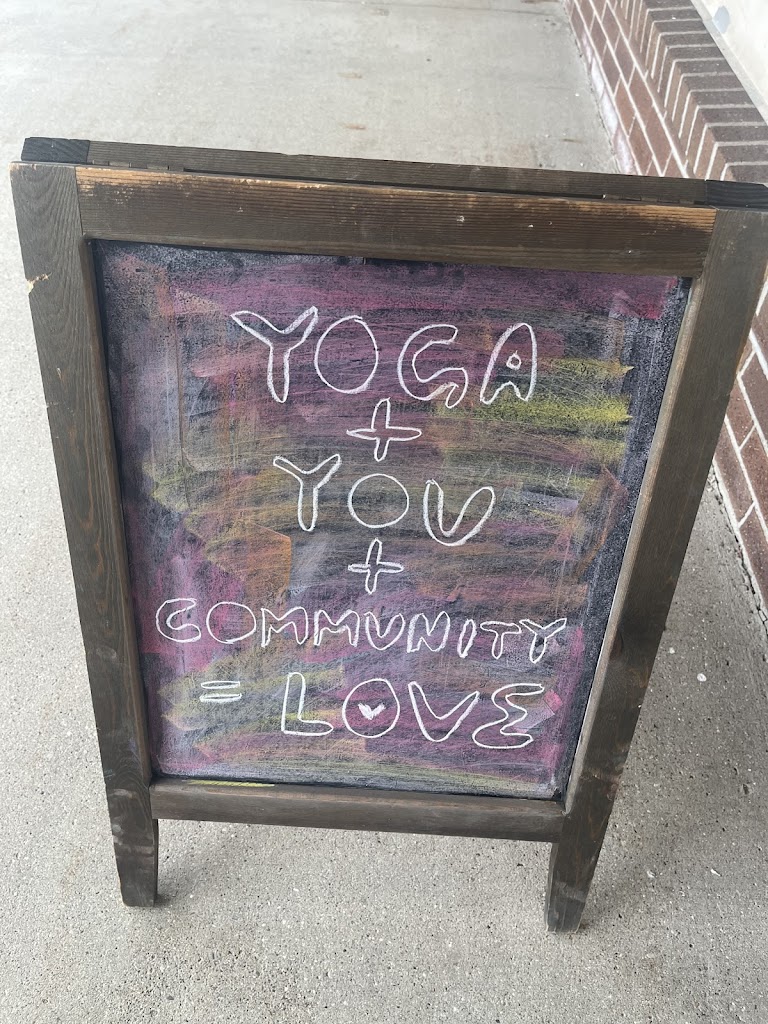 YOGA
+
YOU
+
COMMUNITY
= LOVE